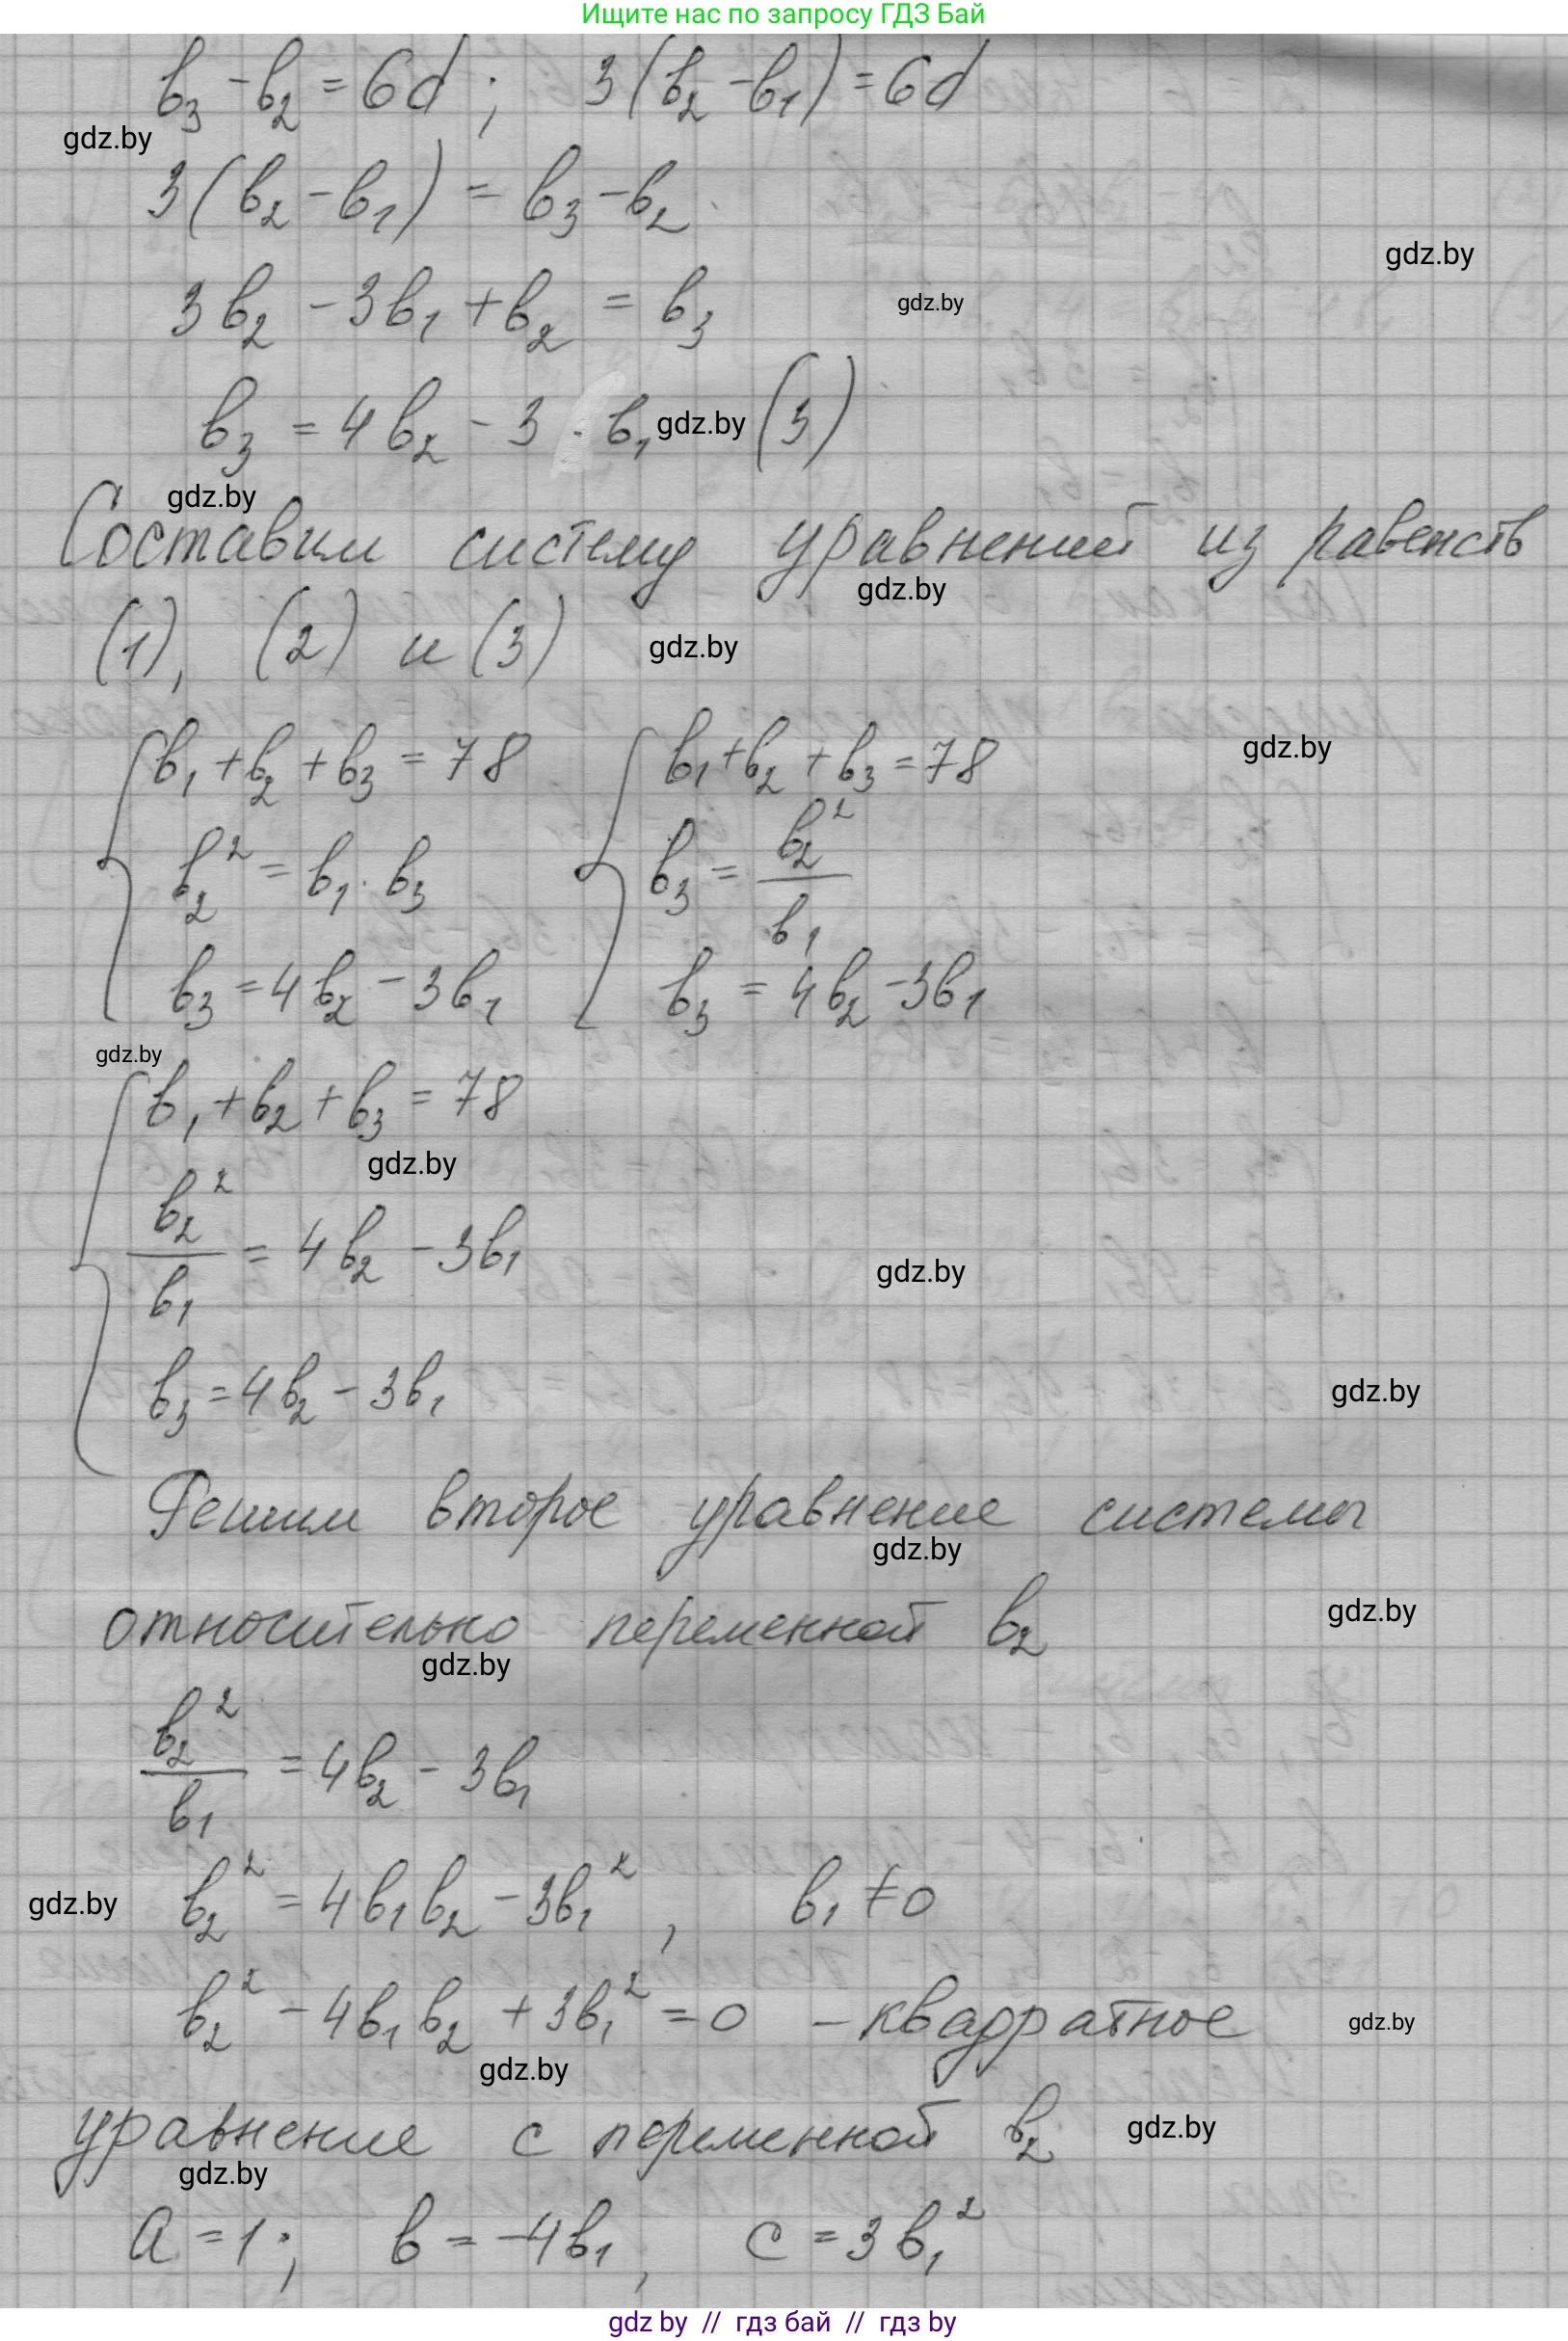 Ищите нас по запросу ГДЗ Бай
b₃ - b₂ = 6d ; 3(b₂ - b₁) = 6d
gdz.by
3(b₂ - b₁) = b₃ - b₂
gdz.by
3b₂ - 3b₁ + b₂ = b₃
gdz.by
b₃ = 4b₂ - 3 · b₁ (3)
gdz.by
gdz.by
Составим систему уравнений из равенств
gdz.by
(1), (2) и (3)
gdz.by
b₁ + b₂ + b₃ = 78 b₁ + b₂ + b₃ = 78
gdz.by
b₂² = b₁ · b₃ b₃ = b₂² / b₁
b₃ = 4b₂ - 3b₁ b₃ = 4b₂ - 3b₁
gdz.by
b₁ + b₂ + b₃ = 78
gdz.by
b₂² / b₁ = 4b₂ - 3b₁
gdz.by
b₃ = 4b₂ - 3b₁
gdz.by
Решим второе уравнение системы
gdz.by
относительно переменной b₂
gdz.by
gdz.by
b₂² / b₁ = 4b₂ - 3b₁
b₂² = 4b₁b₂ - 3b₁² , b₁ ≠ 0
gdz.by
b₂² - 4b₁b₂ + 3b₁² = 0 - квадратное
gdz.by
gdz.by
уравнение с переменной b₂
gdz.by
gdz.by
a = 1 ; b = -4b₁ , c = 3b₁²
gdz by // гдз бай // гдз by